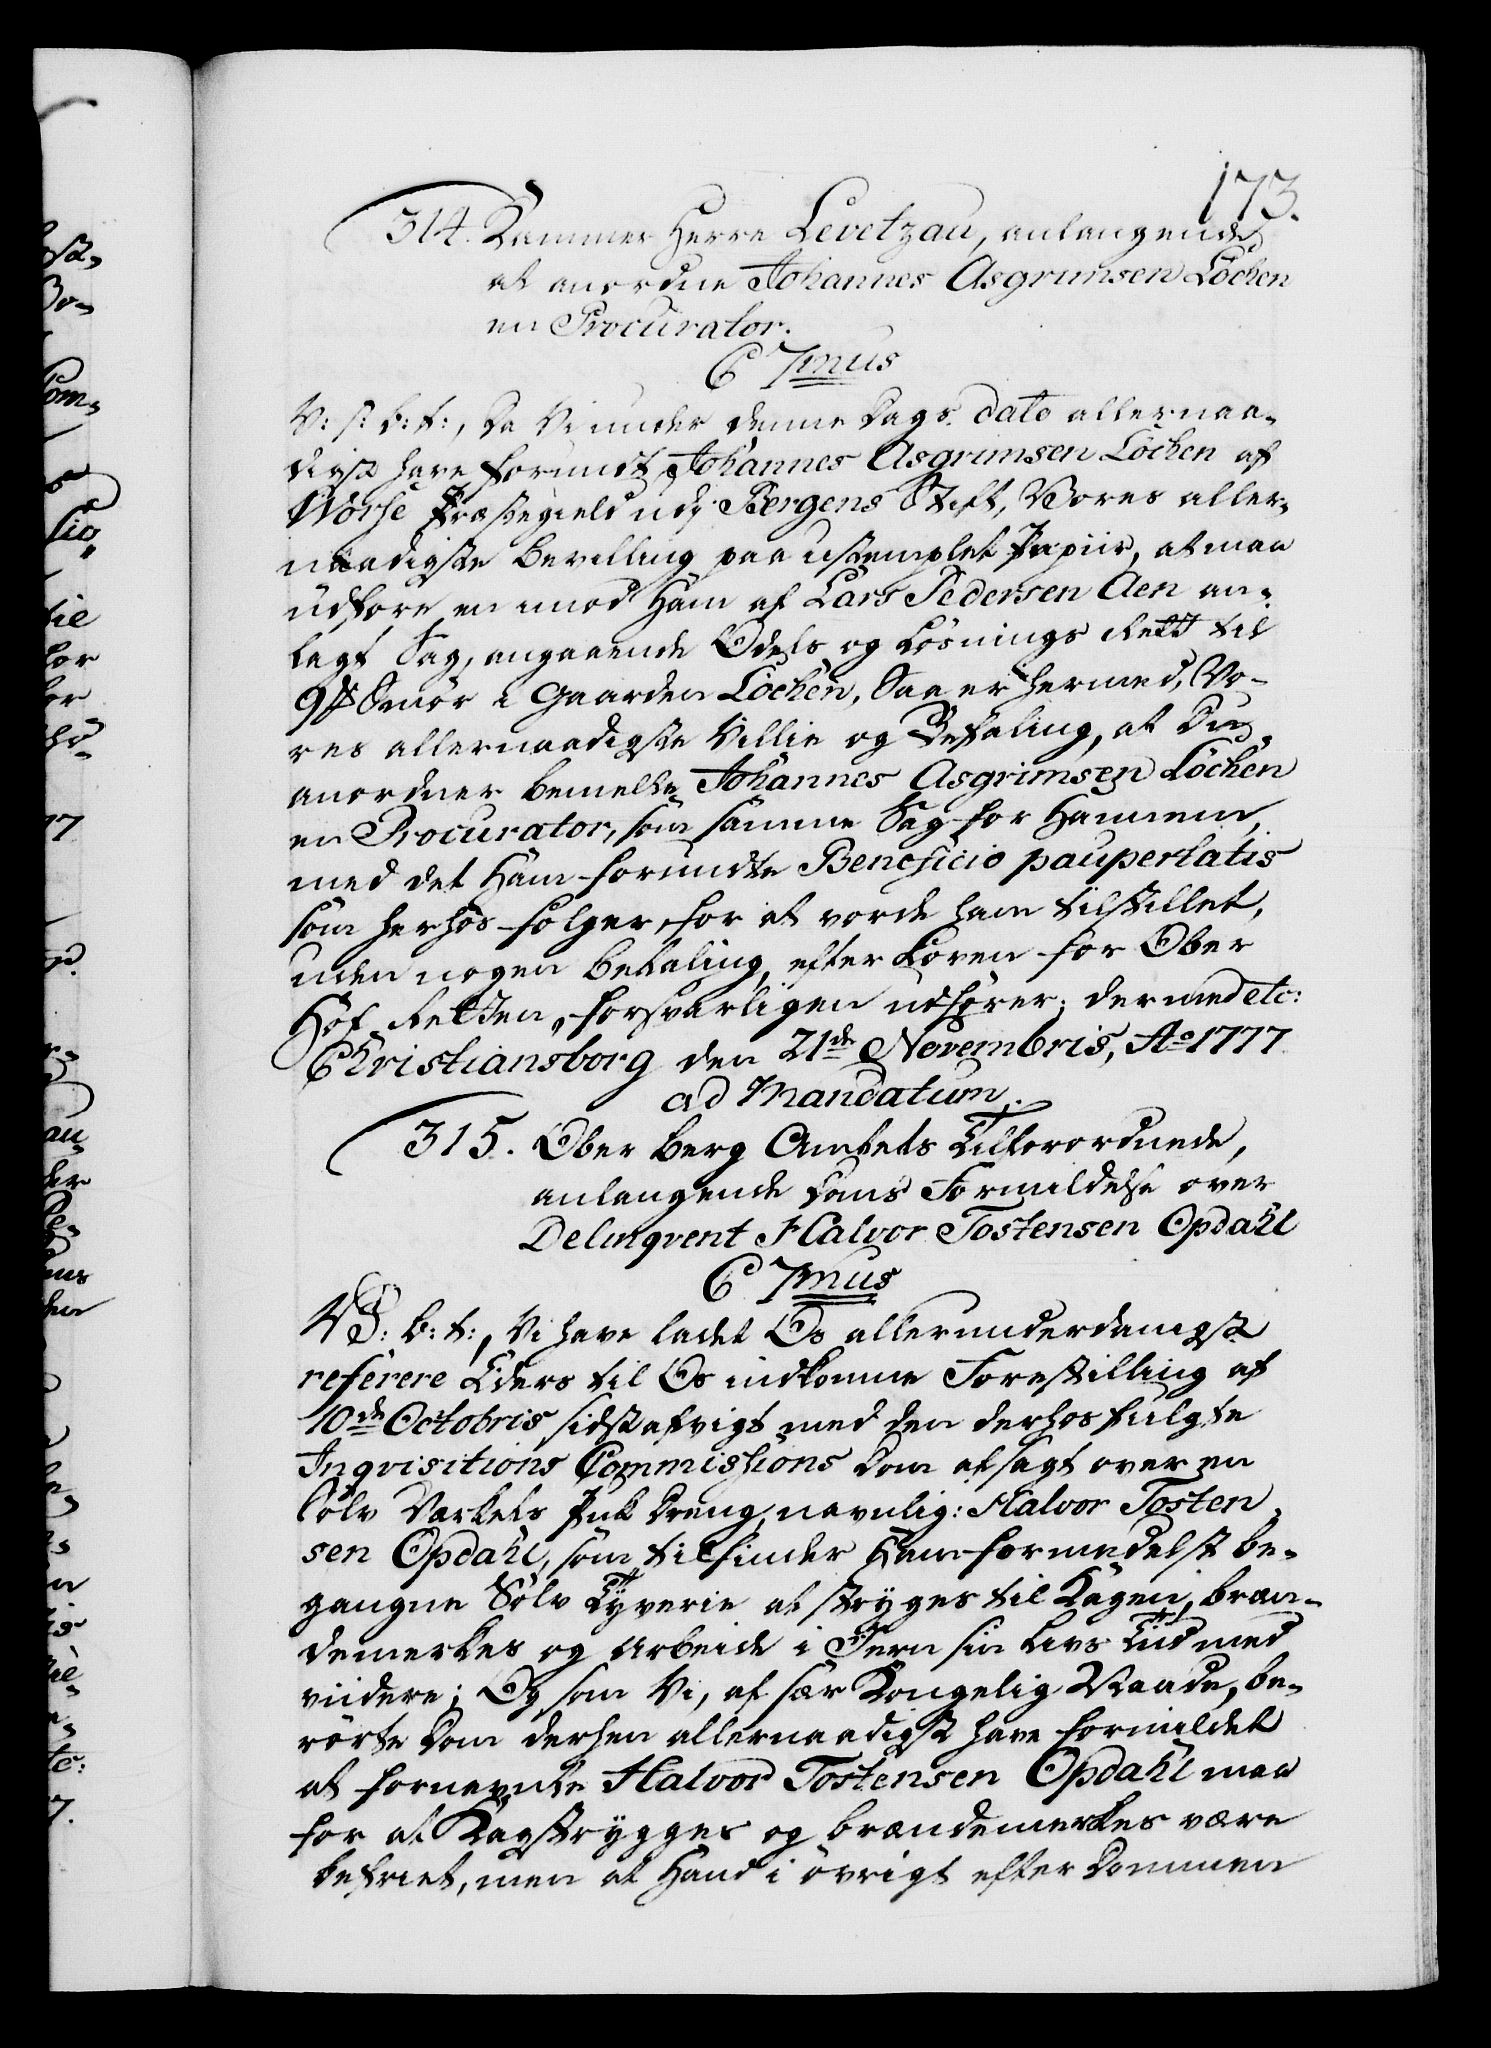 173.
314. Kammer Herre Levetzau, anlangende
at anordne Johannes Asgrimsen Löchen
en Procurator.
C 7mus
V: s: b: t:, Da Vi under denne Dags dato allernaa-
digst have forundt Johannes Asgrimsen Löchen af
Worse Præstegield udj Bergens Stift, Vores aller-
naadigste Bevilling paa ustemplet Papiir, at maa
udföre en imod Ham af Lars Pedersen Aen an-
lagt Sag, angaaende Odels og Lösnings Rett til
9 Smör i Gaarden Löchen, Saa er hermed, Vo-
res allernaadigste Villie og Befaling, at Du
anordner bemelte Johannes Asgrimsen Löchen
en Procurator, som samme Sag for Hannem,
med det Ham forundte Beneficio paupertatis
som herhos fölger for at vorde ham tilstillet,
uden nogen Betaling, efter Loven for Ober
Hof Retten, forsvarligen udförer; dermed etc:
Christiansborg den 21de Novembris, Ao 1777.
ad Mandatum.
315. Ober Berg Amtets Tilforordnede,
anlangende Doms Formildelse over
Delinqvent Halvor Tostensen Opdahl
C 7mus
V S: b: t:, Vi have ladet Os allerunderdanigst
referere Eders til Os indkomne Forestilling af
10de Octobris sidstafvigt med den derhos fulgte
Inqvisitions Commissions Dom afsagt over en
Sölv Værkets Puk Dreng, navnlig: Halvor Tosten-
sen Opdahl, som tilfinder Ham formedelst be-
gangne Sölv Tyverie at stryges til Kagen, bræn-
demerkes og Arbeide i Jern sin Livs Tid med
viidere; Og som Vi, af sær Kongelig Naade, be-
rörte Dom derhen allernaadigst have formildet
at fornevnte Halvor Tostensen Opdahl maa
for at Kagstrygges og brændemerkes være
befriet, men at Hand i övrigt efter Dommen